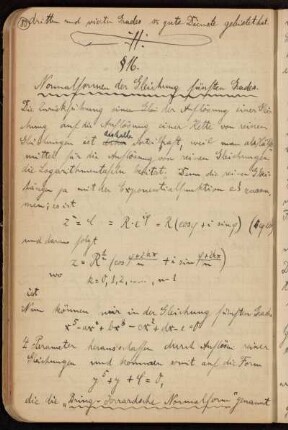 dritten und vierten Grades so gute Dienste geleistet hat.
§16.
Normalformen der Gleichung fünften Grades.
Die Zurückführung einer Gleichung der Auflösung einer Glei-
chung auf die Auflösung einer Kette von reinen
Gleichungen ist deshalb vorteilhaft, weil man als Hilfs-
mittel für die Auflösung von reinen Gleichungen
die Logarithmentafeln besitzt. Denn die reinen Glei-
chungen ja mit der Exponentialfunktion zusam-
men; es ist
z^n = C = R·e^{iφ} = R (cos φ + i sin φ)
und daraus folgt
z = R^{1/n} (cos (φ+2kπ)/n + i sin (φ+2kπ)/n)
wo k = 0, 1, 2, ..., n-1
ist
Nun können wir in der Gleichung fünften Grades
x^5 - ax^4 + bx^3 - cx^2 + dx - e = 0
4 Parameter herausschaffen durch Auflösen reiner
Gleichungen und kommen somit auf die Form
y^5 + y + C = 0,
die die „Bring-Jerrardsche Normalform" genannt